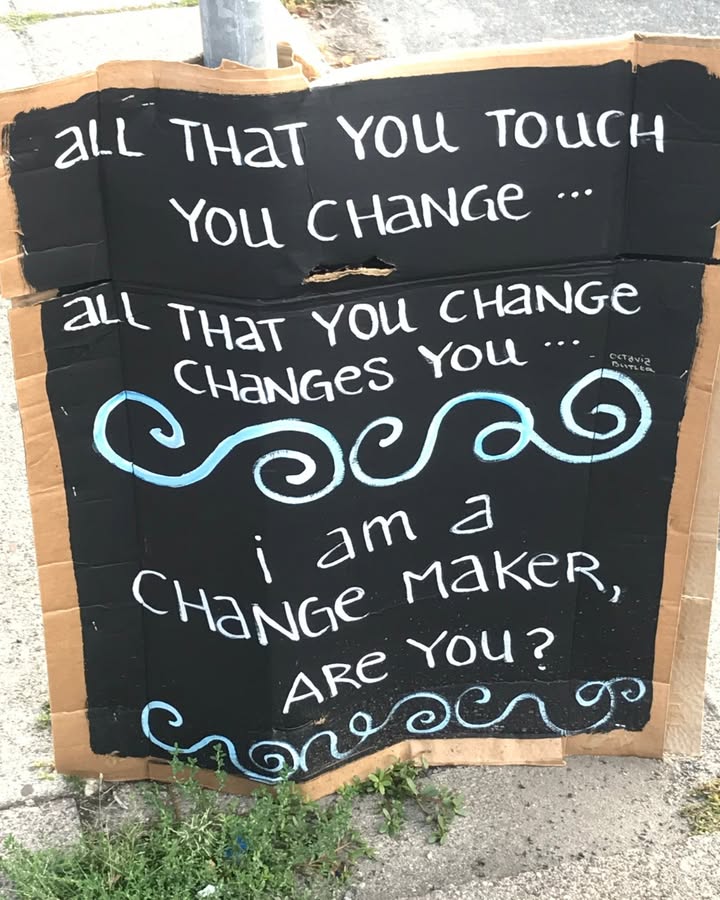 aLL THaT YOU TOUCH
YOU CHaNGe ...
aLL THaT YOU CHaNGe
CHaNGes YOU ...
OCTavia
BUTLER
i am a
CHaNGe MaKeR,
ARe YOU?